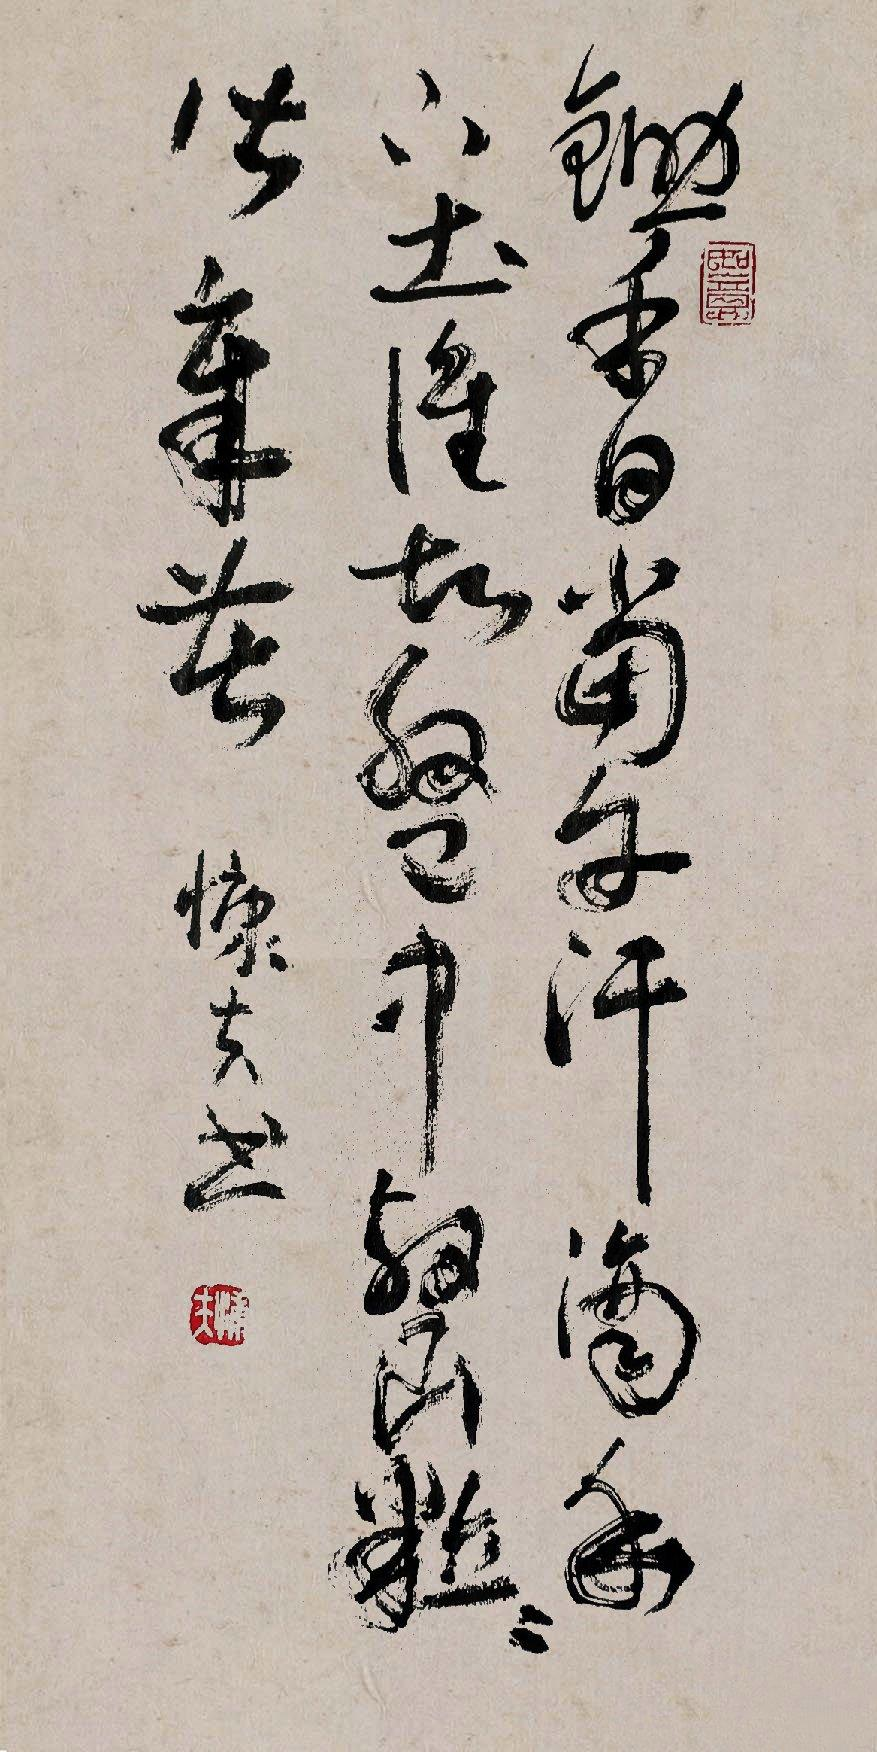 鋤禾日當午汗滴禾
下土誰知盤中飧粒〻
皆辛苦 懷夫书